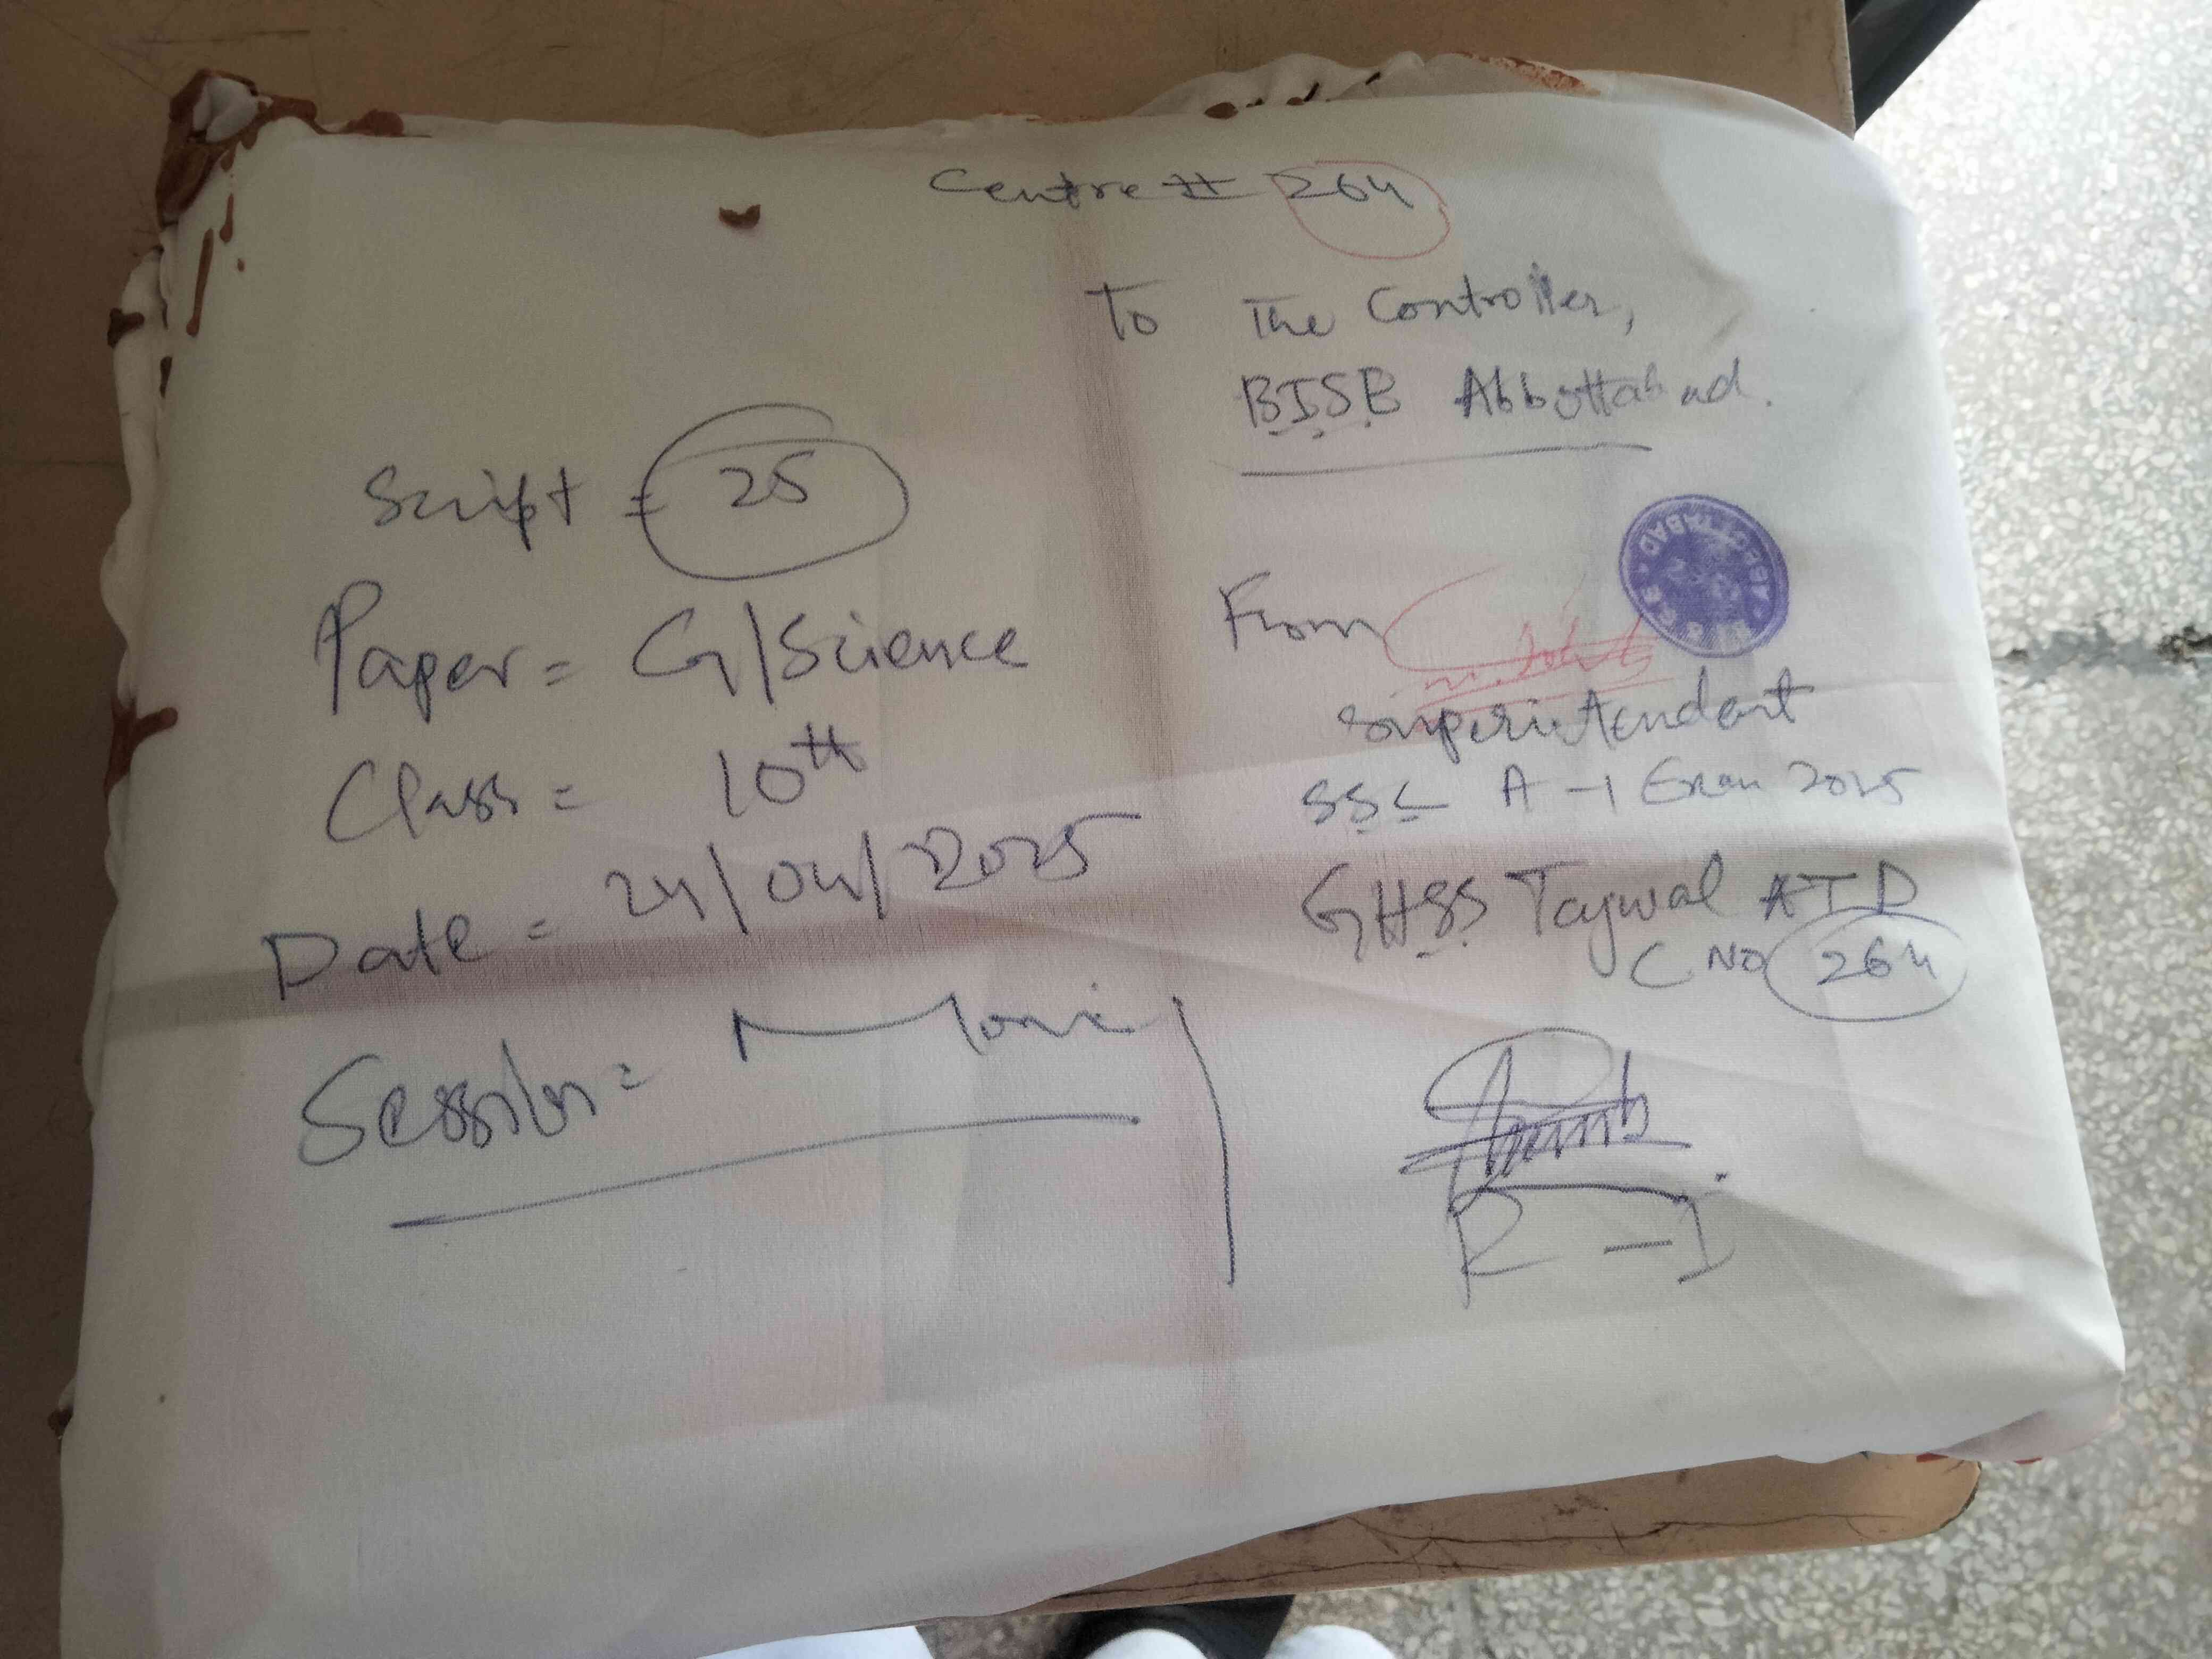 Centre # 264
To The Controller,
BISE Abbottabad.
Script = 25
Paper = G/Science
Class = 10th
Date = 24/04/2025
Session = Morning
From
Superintendent
SSC A-I Exam 2025
GHSS Tajwal ATD
C NO 264
R-I